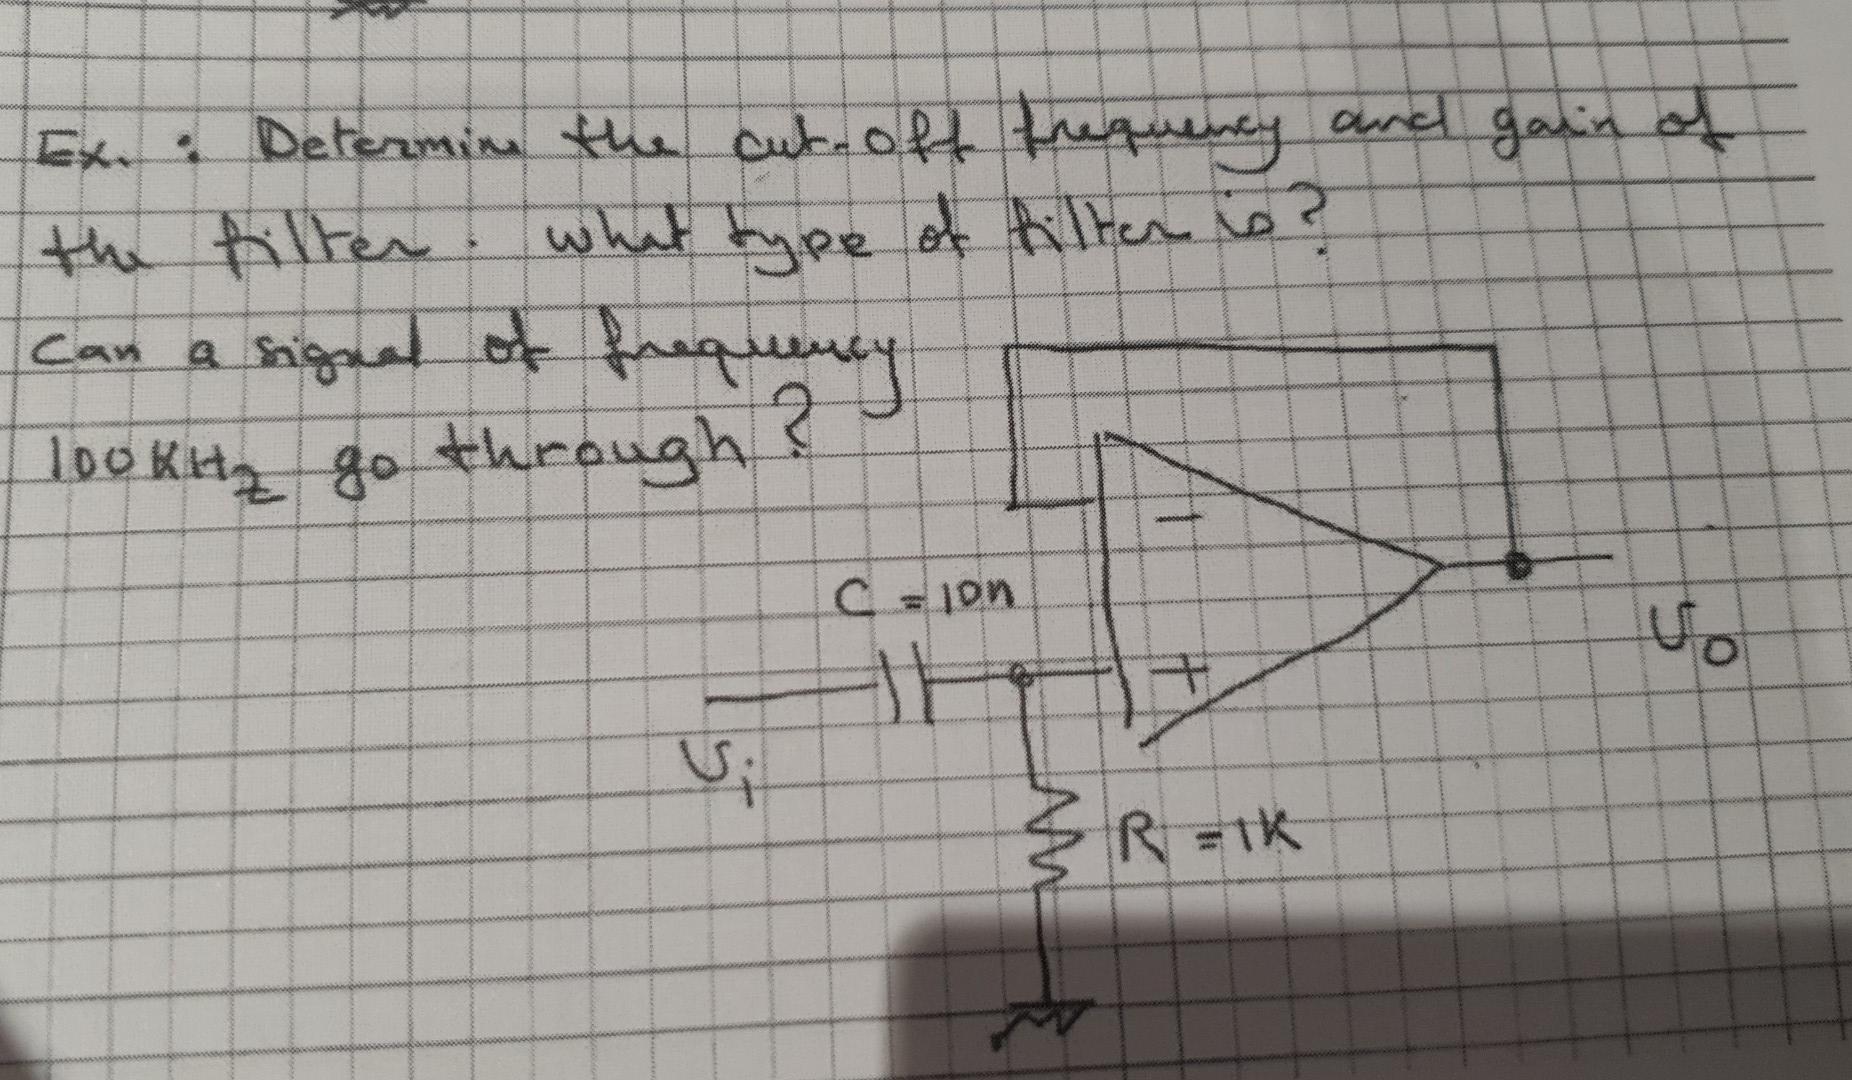 Ex. : Determine the cut-off frequency and gain of
the filter. what type of filter is?
Can a signal of frequency
100KHz go through?
-
C = 10n
+
Vo
Vi
R = 1K